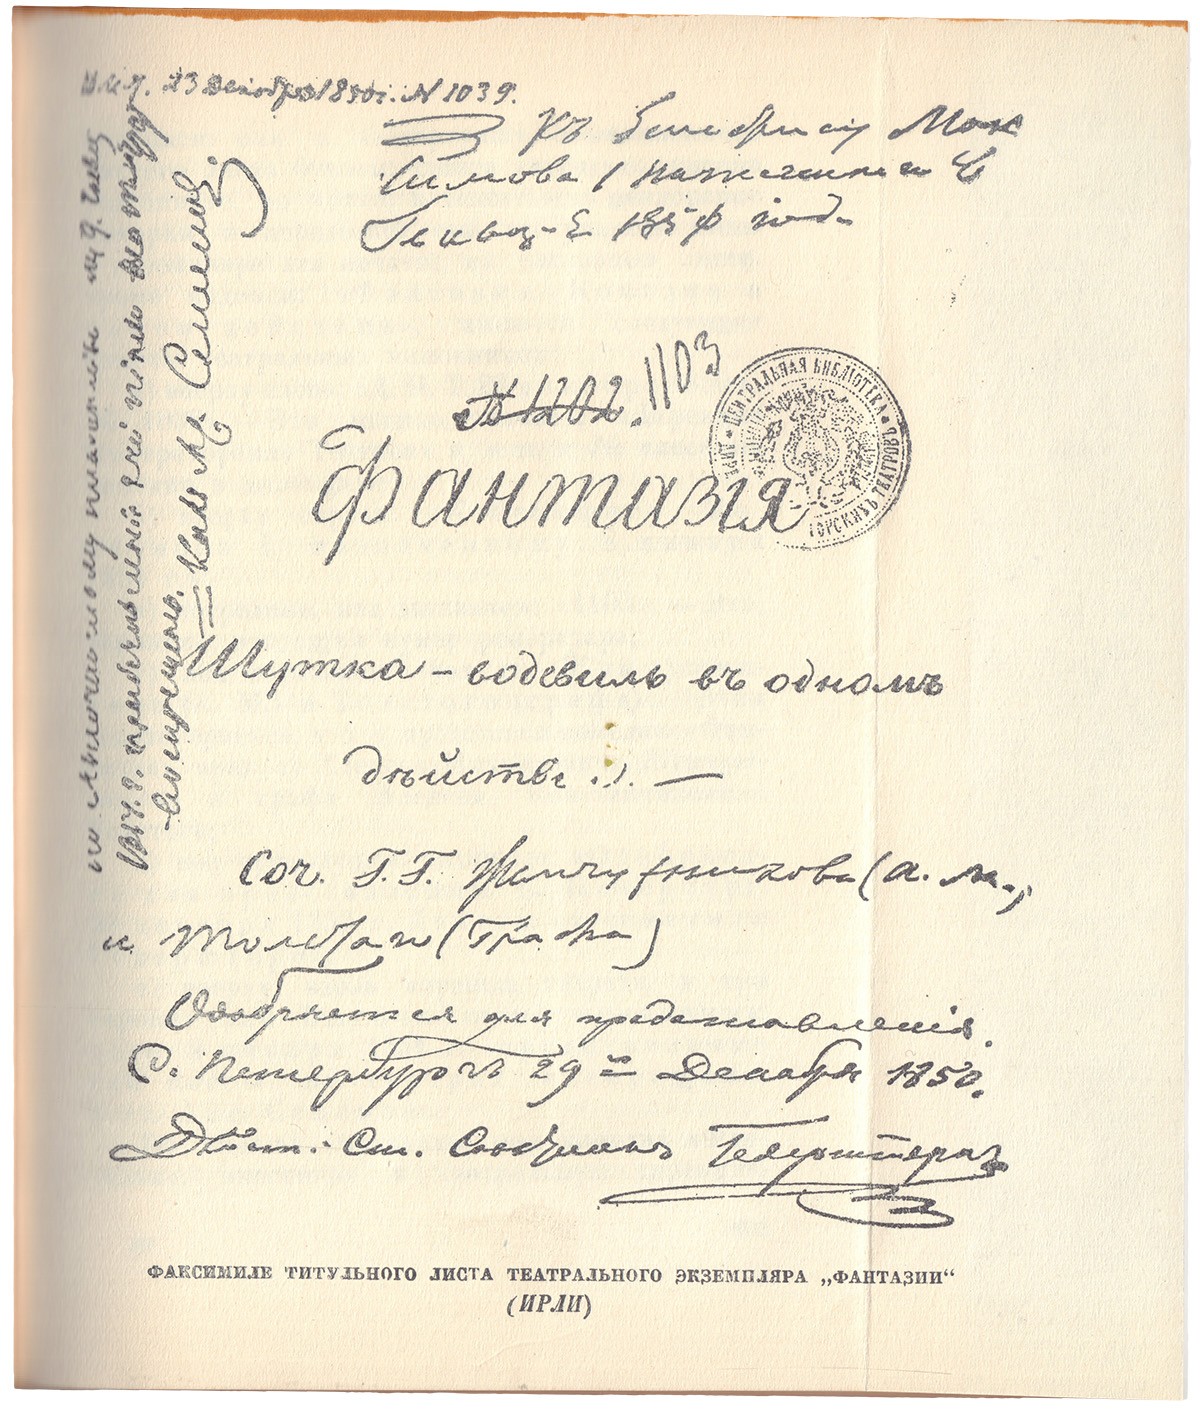 23 Декабря 1850 г. № 1039.
Къ бенефису Мак
симова 1 назначенном 8
Генваря 1851 года
№ 1202. 1103
ЦЕНТРАЛЬНАЯ БИБЛІОТЕКА
ИМПЕРАТОРСКИХЪ ТЕАТРОВЪ
Фантазія
Шутка-водевиль въ одномъ
дѣйствіи. —
Соч. Г.Г. Жемчужникова (А. М.,
и Толстаго (Графа)
Одобряется для представленія.
С. Петербургъ 29 Декабря 1850.
Дѣйст: Ст. Совѣтникъ Гедерштернъ
по Высочайшему повелѣнію сего
1851 г. представленіе сей піесы въ театрахъ
воспрещено. Кол. Ас. Семенов
ФАКСИМИЛЕ ТИТУЛЬНОГО ЛИСТА ТЕАТРАЛЬНОГО ЭКЗЕМПЛЯРА „ФАНТАЗИИ“
(ИРЛИ)